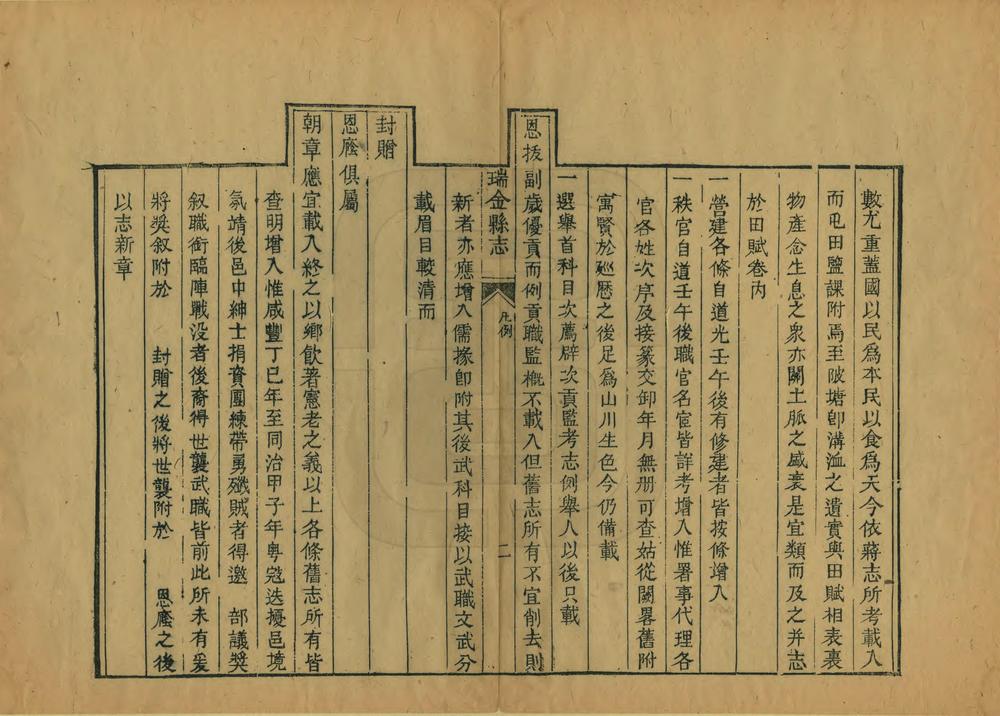 數尤重蓋國以民爲本民以食爲天今依蔣志所考載入
而屯田鹽課附焉至陂塘卽溝洫之遺實與田賦相表裏
物產念生息之衆亦關土脉之盛衰是宜類而及之并志
於田賦卷内
一營建各條自道光壬午後有修建者皆按條增入
一秩官自道壬午後職官名宦皆詳考增入惟署事代理各
官各姓次序及接篆交卸年月無册可查姑從闕畧舊附
寓賢於廵歷之後足爲山川生色今仍備載
一選舉首科目次薦辟次貢監考志例舉人以後只載
恩拔副歲優貢而例貢職監槪不載入但舊志所有不宜削去則
瑞金縣志 凡例 二
新者亦應增入儒掾卽附其後武科目接以武職文武分
載眉目較清而
封贈
恩廕俱屬
朝章應宜載入終之以鄉飮著憲老之義以上各條舊志所有皆
查明增入惟咸豐丁巳年至同治甲子年粤寇迭擾邑境
氛靖後邑中紳士捐資團練帶勇殲賊者得邀 部議獎
叙職銜臨陣戰没者後裔得世襲武職皆前此所未有爰
將獎叙附於 封贈之後將世襲附於 恩廕之後
以志新章